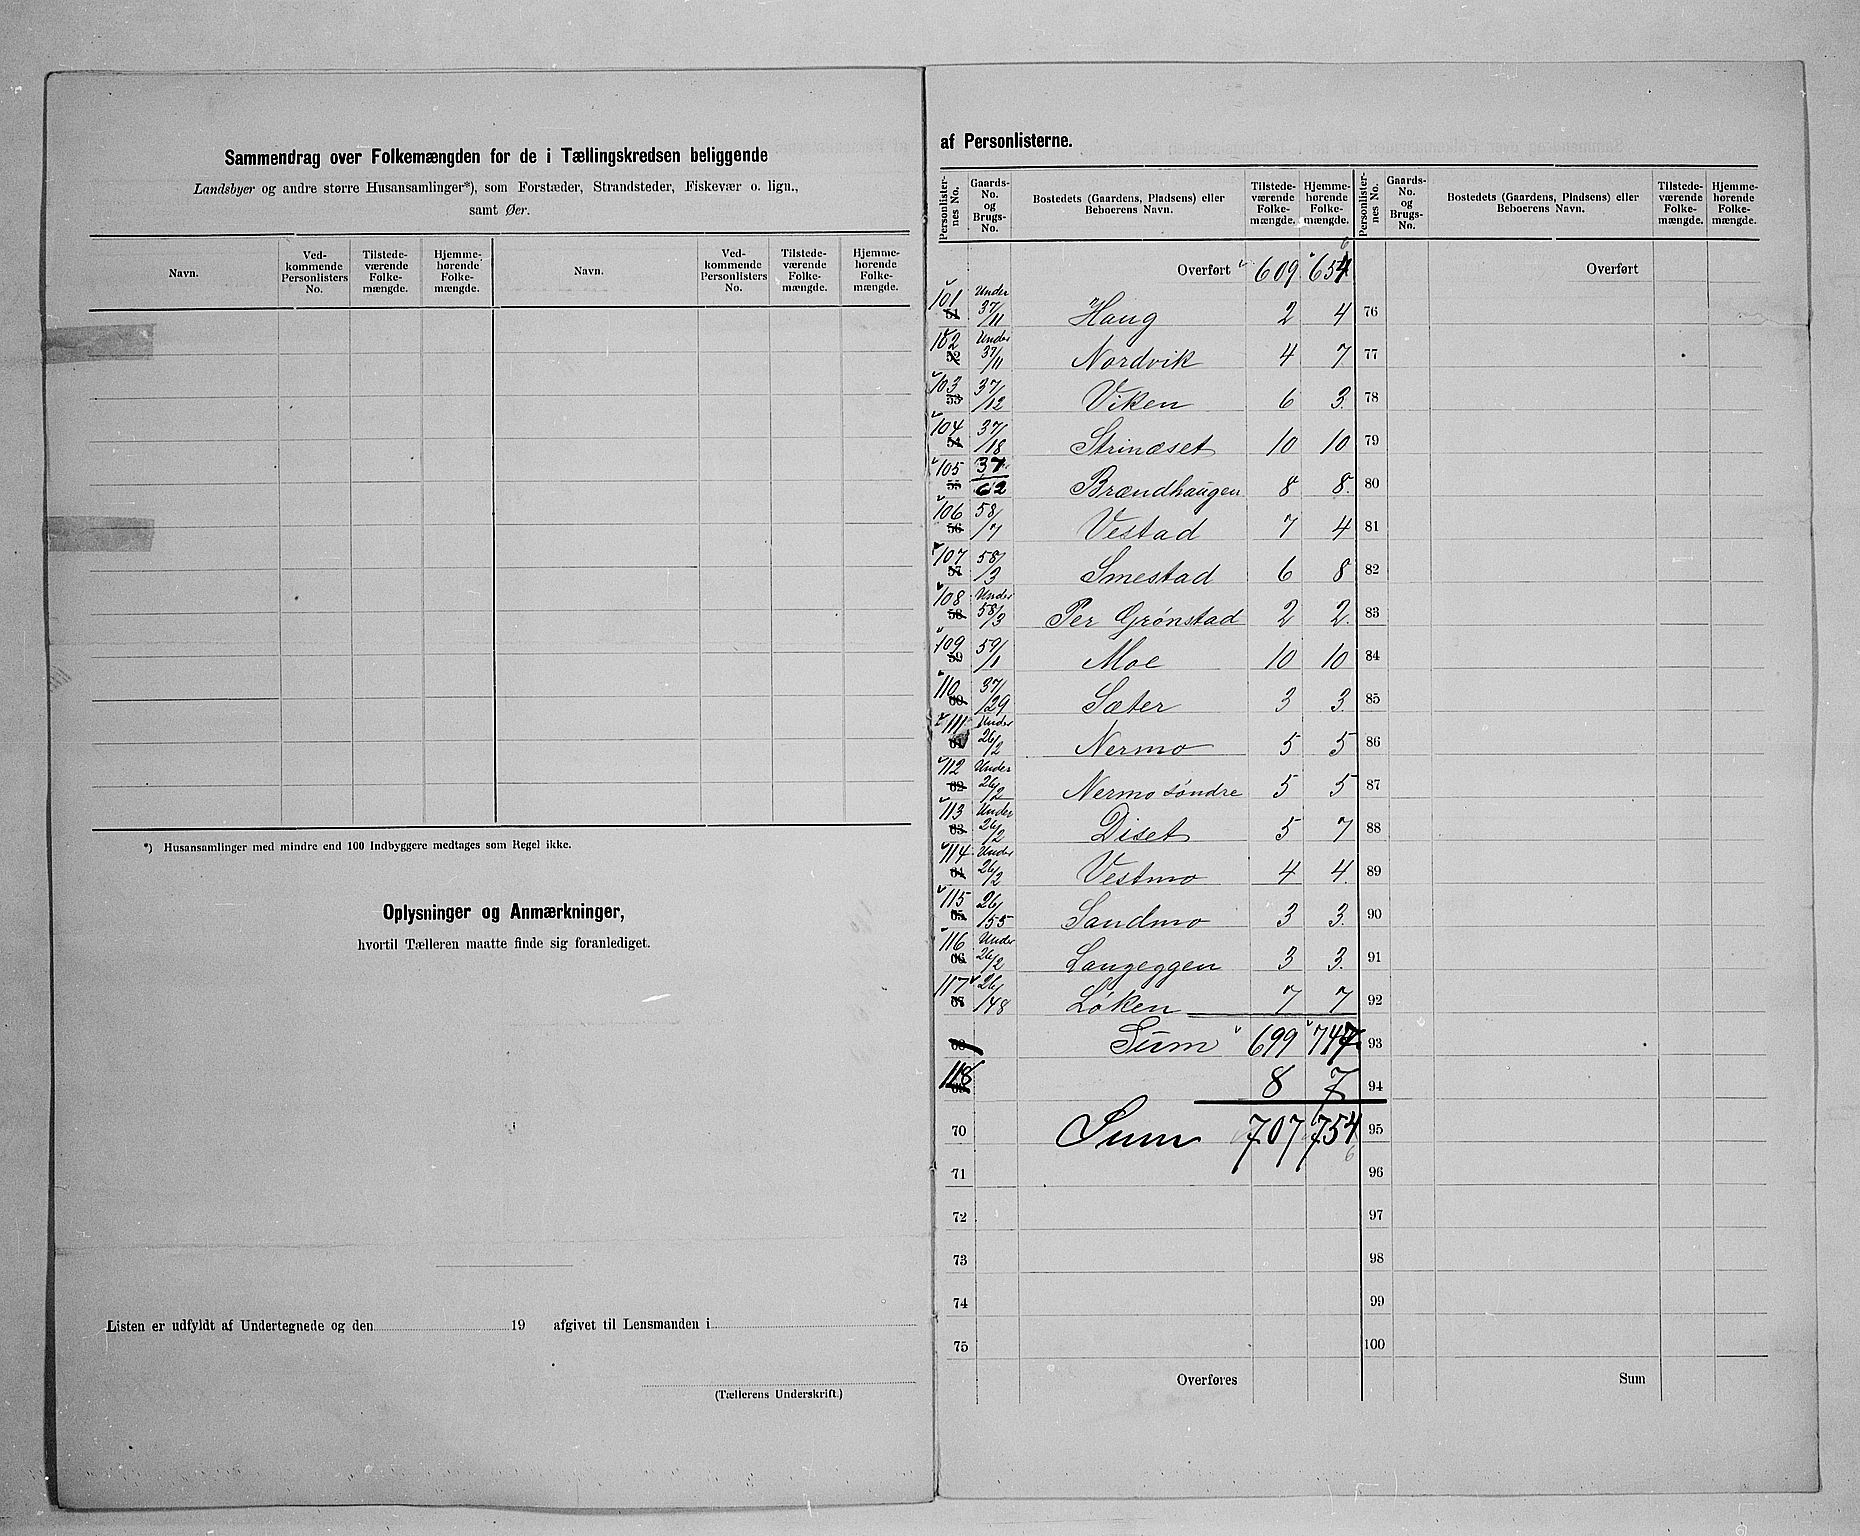 Sammendrag over Folkemængden for de i Tællingskredsen beliggende
Landsbyer og andre større Husansamlinger*), som Forstæder, Strandsteder, Fiskevær o. lign.,
samt Øer.
Navn. Ved-kommende Personlisters No. Tilstede-værende Folke-mængde. Hjemme-hørende Folke-mængde. Navn. Ved-kommende Personlisters No. Tilstede-værende Folke-mængde. Hjemme-hørende Folke-mængde.
*) Husansamlinger med mindre end 100 Indbyggere medtages som Regel ikke.
Oplysninger og Anmærkninger,
hvortil Tælleren maatte finde sig foranlediget.
Listen er udfyldt af Undertegnede og den 19 afgivet til Lensmanden i
(Tællerens Underskrift.)
af Personlisterne.
Personlister-nes No. Gaards-No. og Brugs-No. Bostedets (Gaardens, Pladsens) eller Beboerens Navn. Tilstede-værende Folke-mængde. Hjemme-hørende Folke-mængde. Personlister-nes No. Gaards-No. og Brugs-No. Bostedets (Gaardens, Pladsens) eller Beboerens Navn. Tilstede-værende Folke-mængde. Hjemme-hørende Folke-mængde.
Overført 609 654 Overført
101 51 Under 37/11 Haug 2 4 76
102 52 Under 37/11 Nordvik 4 7 77
103 53 37/12 Viken 6 3 78
104 54 37/18 Strinæset 10 10 79
105 55 37/62 Brændhaugen 8 8 80
106 56 58/7 Vestad 7 4 81
107 57 58/3 Smestad 6 8 82
108 58 Under 58/3 Per Grønstad 2 2 83
109 59 59/1 Moe 10 10 84
110 60 37/29 Sæter 3 3 85
111 61 Under 26/2 Nermo 5 5 86
112 62 Under 26/2 Nermo søndre 5 5 87
113 63 Under 26/2 Diset 5 7 88
114 64 Under 26/2 Vestmo 4 4 89
115 65 26/155 Sandmo 3 3 90
116 66 Under 26/2 Langeggen 3 3 91
117 67 26/148 Løken 7 7 92
68 Sum 699 747 93
118 69 8 7 94
70 Sum 707 754 95
71 6 96
72 97
73 98
74 99
75 100
Overføres Sum